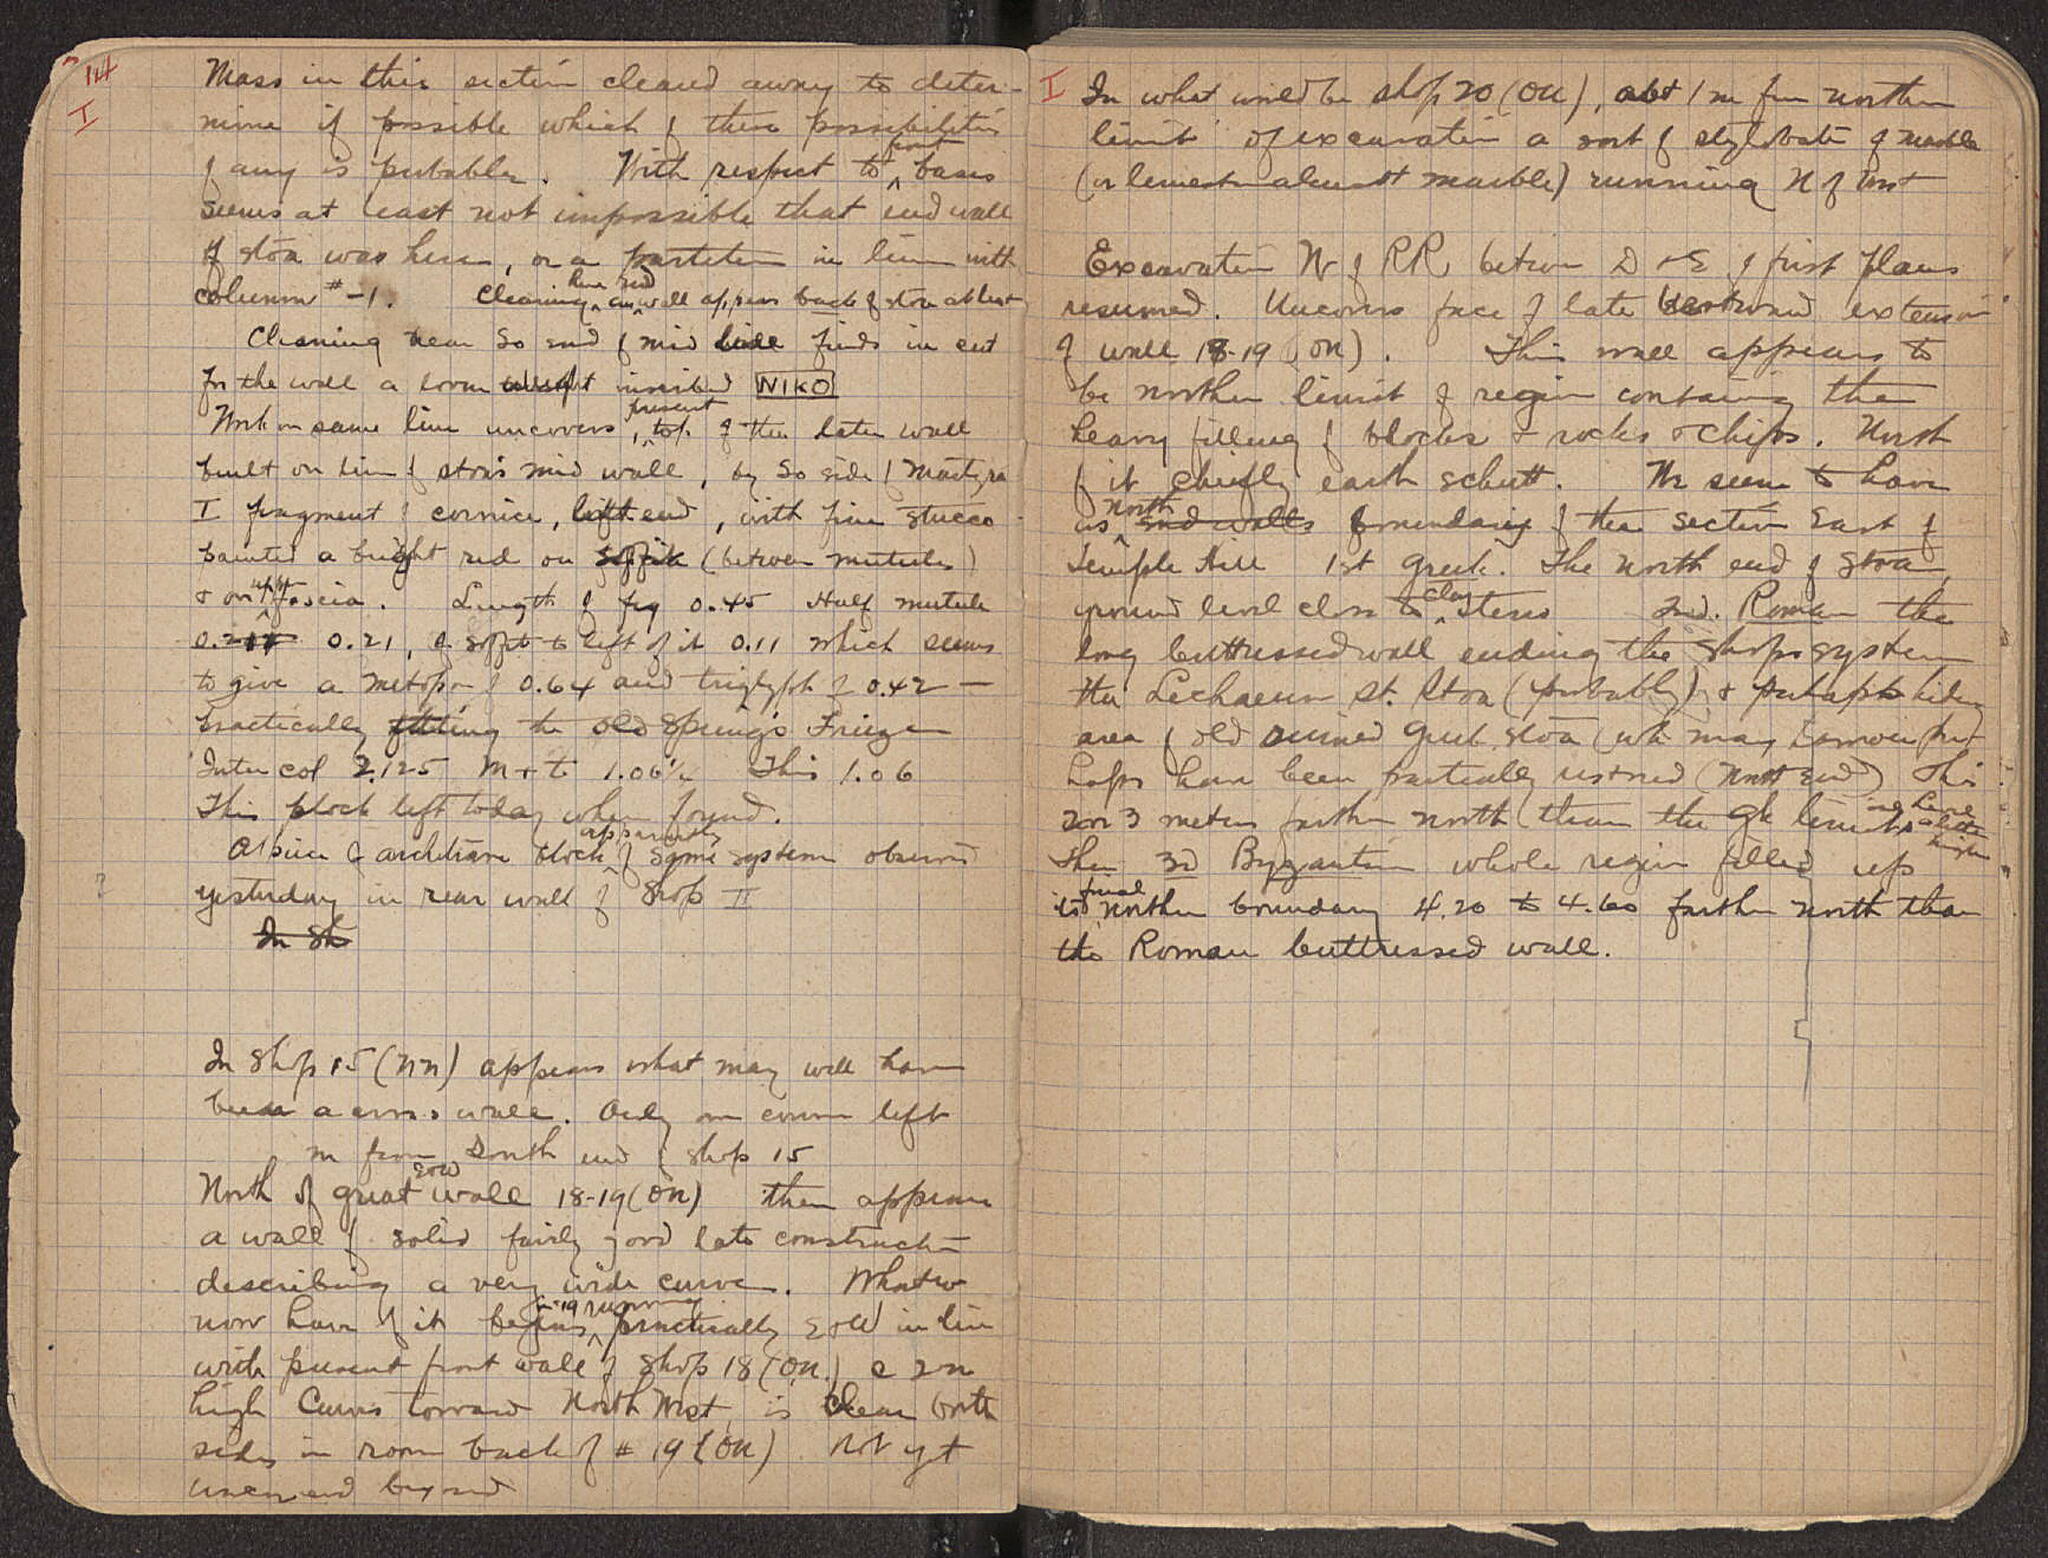 114
I
Mass in this section cleared away to deter-
mine if possible which of these possibilities
if any is probable. With respect to front bases
seems at least not impossible that end wall
of stoa was here, or a partition in line with
column #-1. Cleaning here and wall appears back of stoa at least
Cleaning near So end of mid line finds in cut
for the wall a loom weight inscribed NIKO
Work on same line uncovers, present top of the later wall
built on line of stoa's mid wall, by So side of Martyra
I fragment of cornice, left end, with fine stucco
painted a bright red on soffit (between mutules)
& on upper fascia. Length of frg 0.45 Half mutule
0.21, of soffit to left of it 0.11 which seems
to give a metopon of 0.64 and triglyph of 0.42 —
practically fitting the old Spring's Frieze
Intercol 2.125 M + t 1.06½ This 1.06
This block left today when found.
A piece of architrave block of apparently same system observed
yesterday in rear wall of Shop II
?
In Sh
In Shop 15 (NN) appears what may well have
been a cross wall. Only one course left
m from South end of shop 15
North of great EOW wall 18-19 (ON) there appears
a wall of solid fairly good late construction
describing a very wide curve. What we
now have of it begins in 19 running practically EOW in line
with present front wall of Shop 18 (ON.) c 2m
high Curves toward North West, is clear both
sides in room back of # 19 (ON) Not yet
uncovered beyond
I
In what would be shop 20 (ON), abt 1 m from northern
limit of excavation a sort of stylobate of marble
(or limestone almost marble) running N of West
Excavation W of RR between D & E of first plans
resumed. Uncovers face of late westward extension
of wall 18-19 (ON). This wall appears to
be northern limit of region containing the
heavy filling of blocks & rocks & chips. North
of it chiefly earth schutt. We seem to have
as North end walls boundaries of the section East of
Temple Hill 1st Greek. The North end of Stoa,
ground level close to clay Steres 2nd. Roman the
long buttressed wall ending the shops system
the Lechaeum St. Stoa (probably) & perhaps
area of old ruined Greek stoa (wh may however per-
haps have been partially restored (North End)) This
2 or 3 meters farther north than the Gk limits
Then 3d Byzantine whole region filled up
its final northern boundary 4.20 to 4.60 farther north than
the Roman buttressed wall.